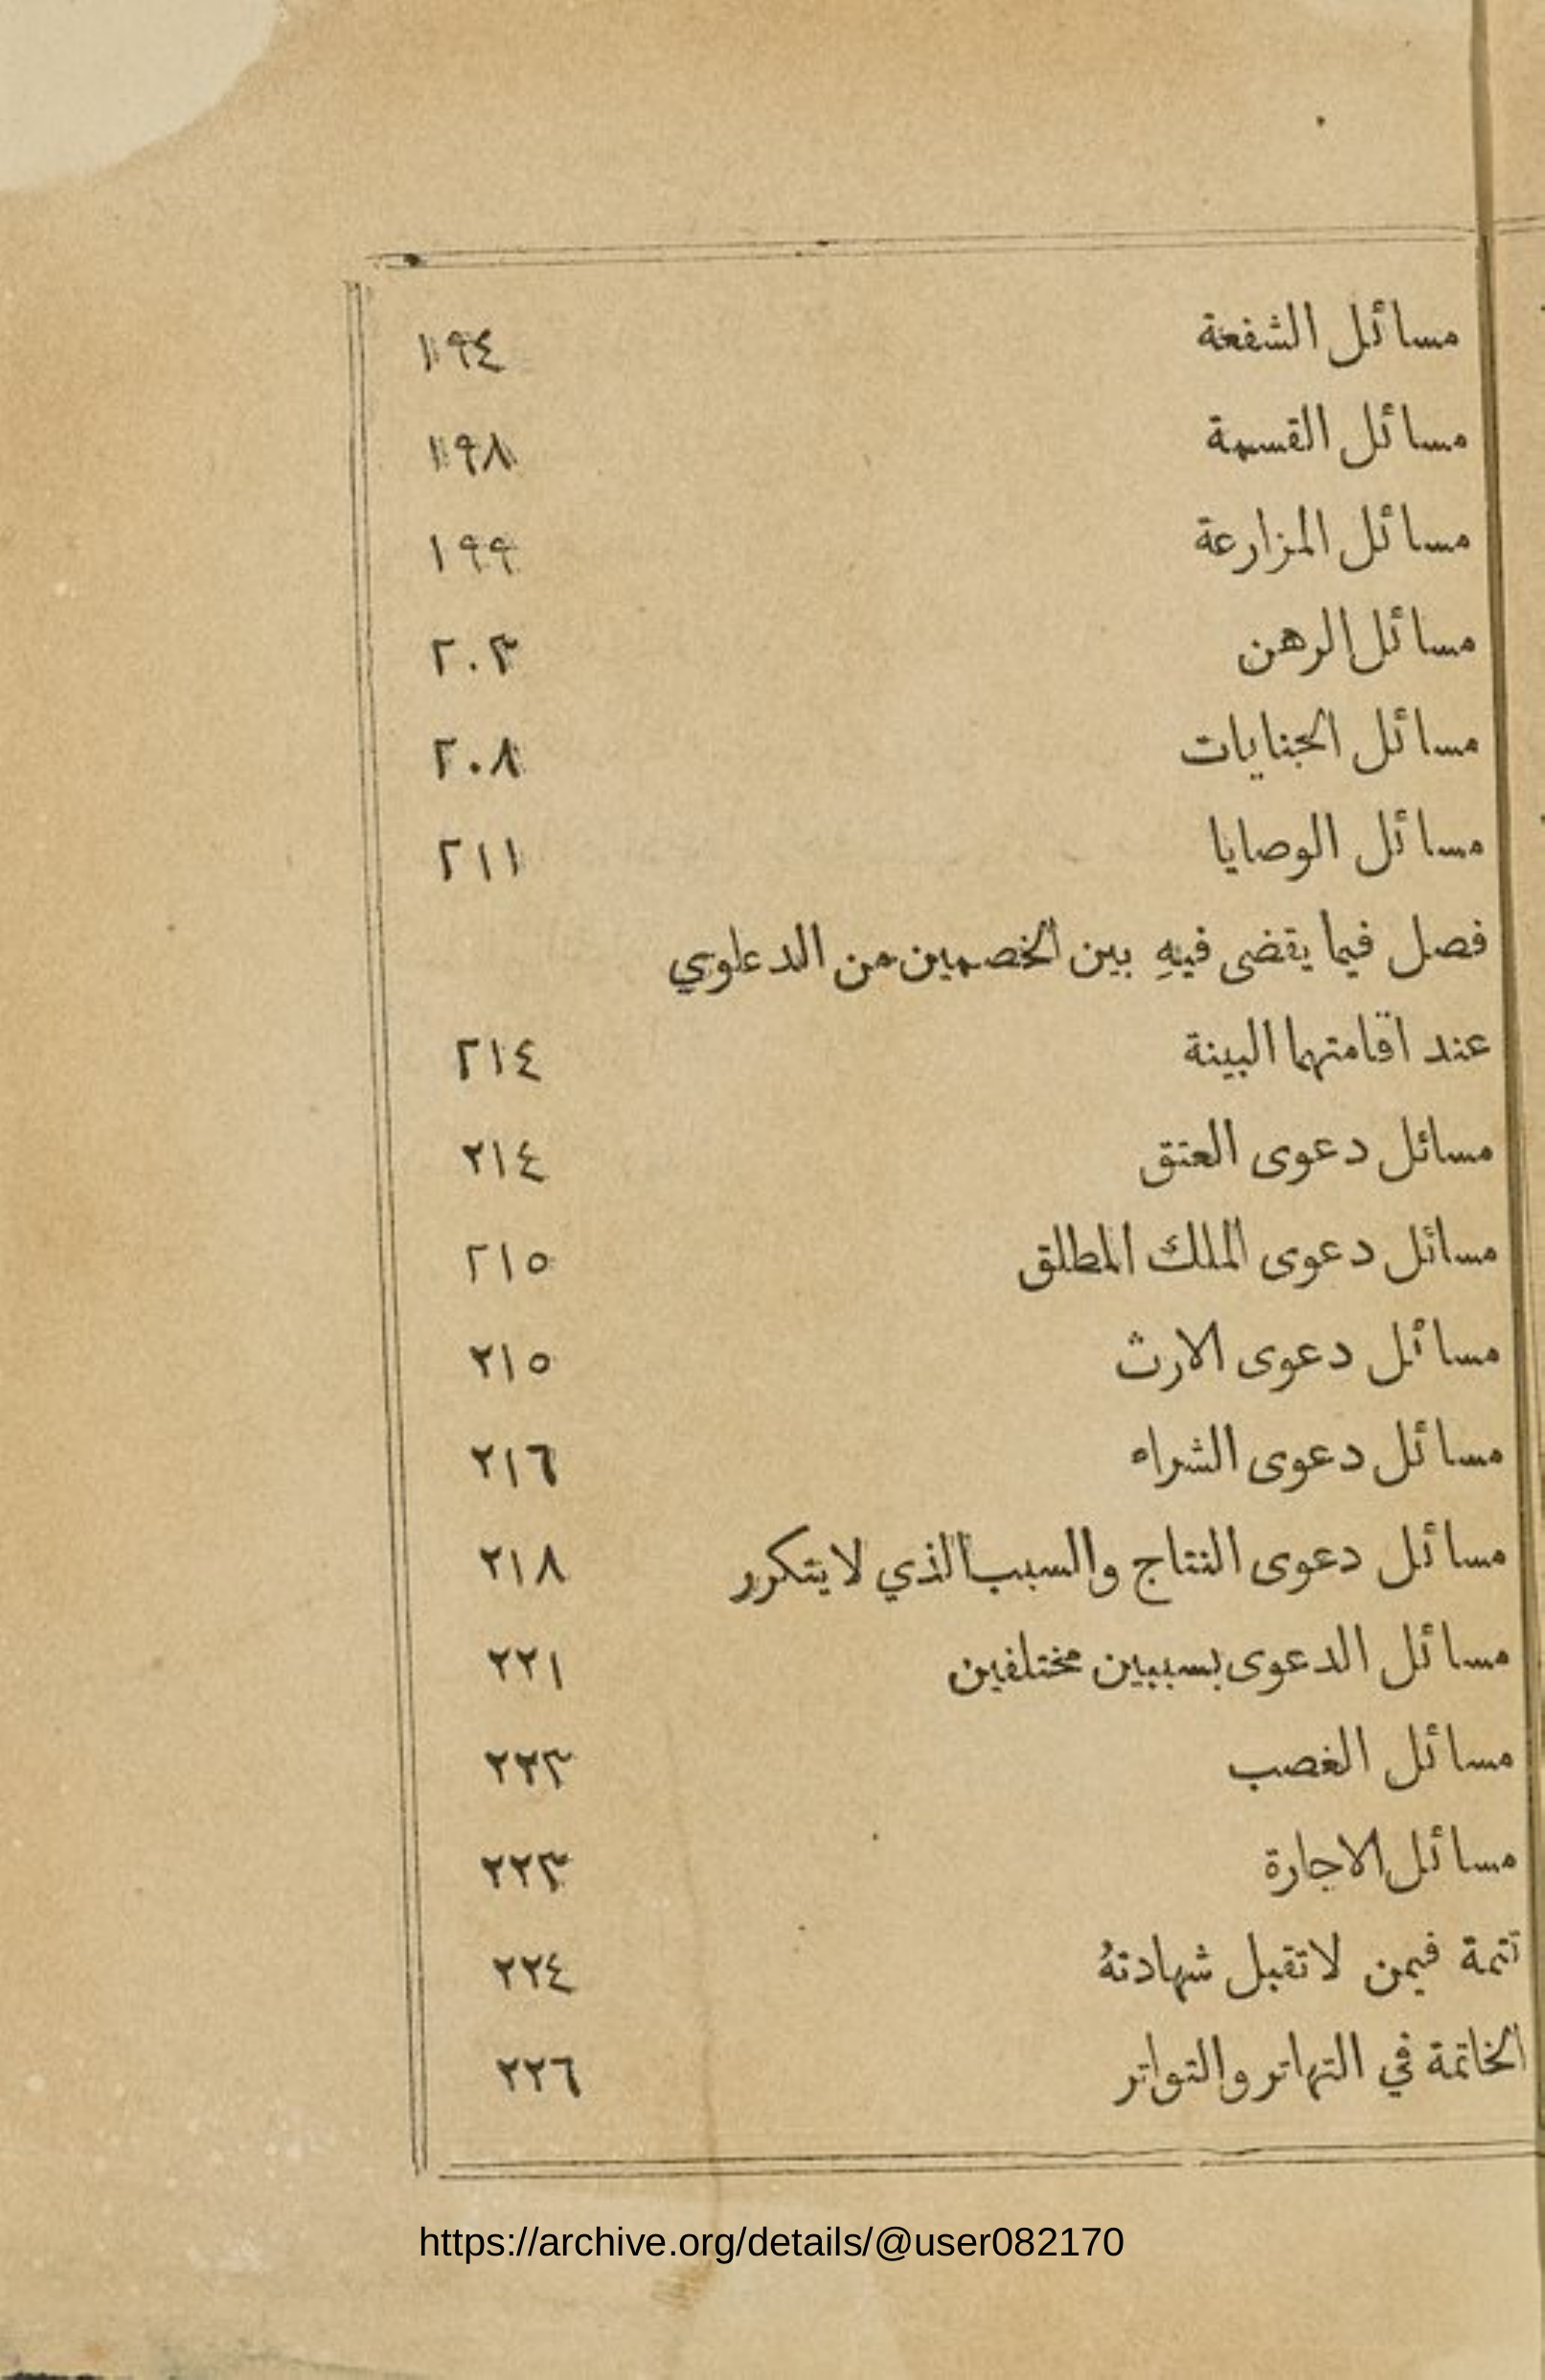 مسائل الشفعة ١٩٤
مسائل القسمة ١٩٨
مسائل المزارعة ١٩٩
مسائل الرهن ٢٠٣
مسائل الجنايات ٢٠٨
مسائل الوصايا ٢١١
فصل فيما يقضى فيهِ بين الخصمين من الدعاوي
عند اقامتهما البينة ٢١٤
مسائل دعوى العتق ٢١٤
مسائل دعوى الملك المطلق ٢١٥
مسائل دعوى الارث ٢١٥
مسائل دعوى الشراء ٢١٦
مسائل دعوى النتاج والسبب الذي لا يتكرر ٢١٨
مسائل الدعوى بسببين مختلفين ٢٢١
مسائل الغصب ٢٢٣
مسائل الاجارة ٢٢٣
تتمة فيمن لا تقبل شهادتهُ ٢٢٤
الخاتمة في التهاتر والتواتر ٢٢٦
https://archive.org/details/@user082170